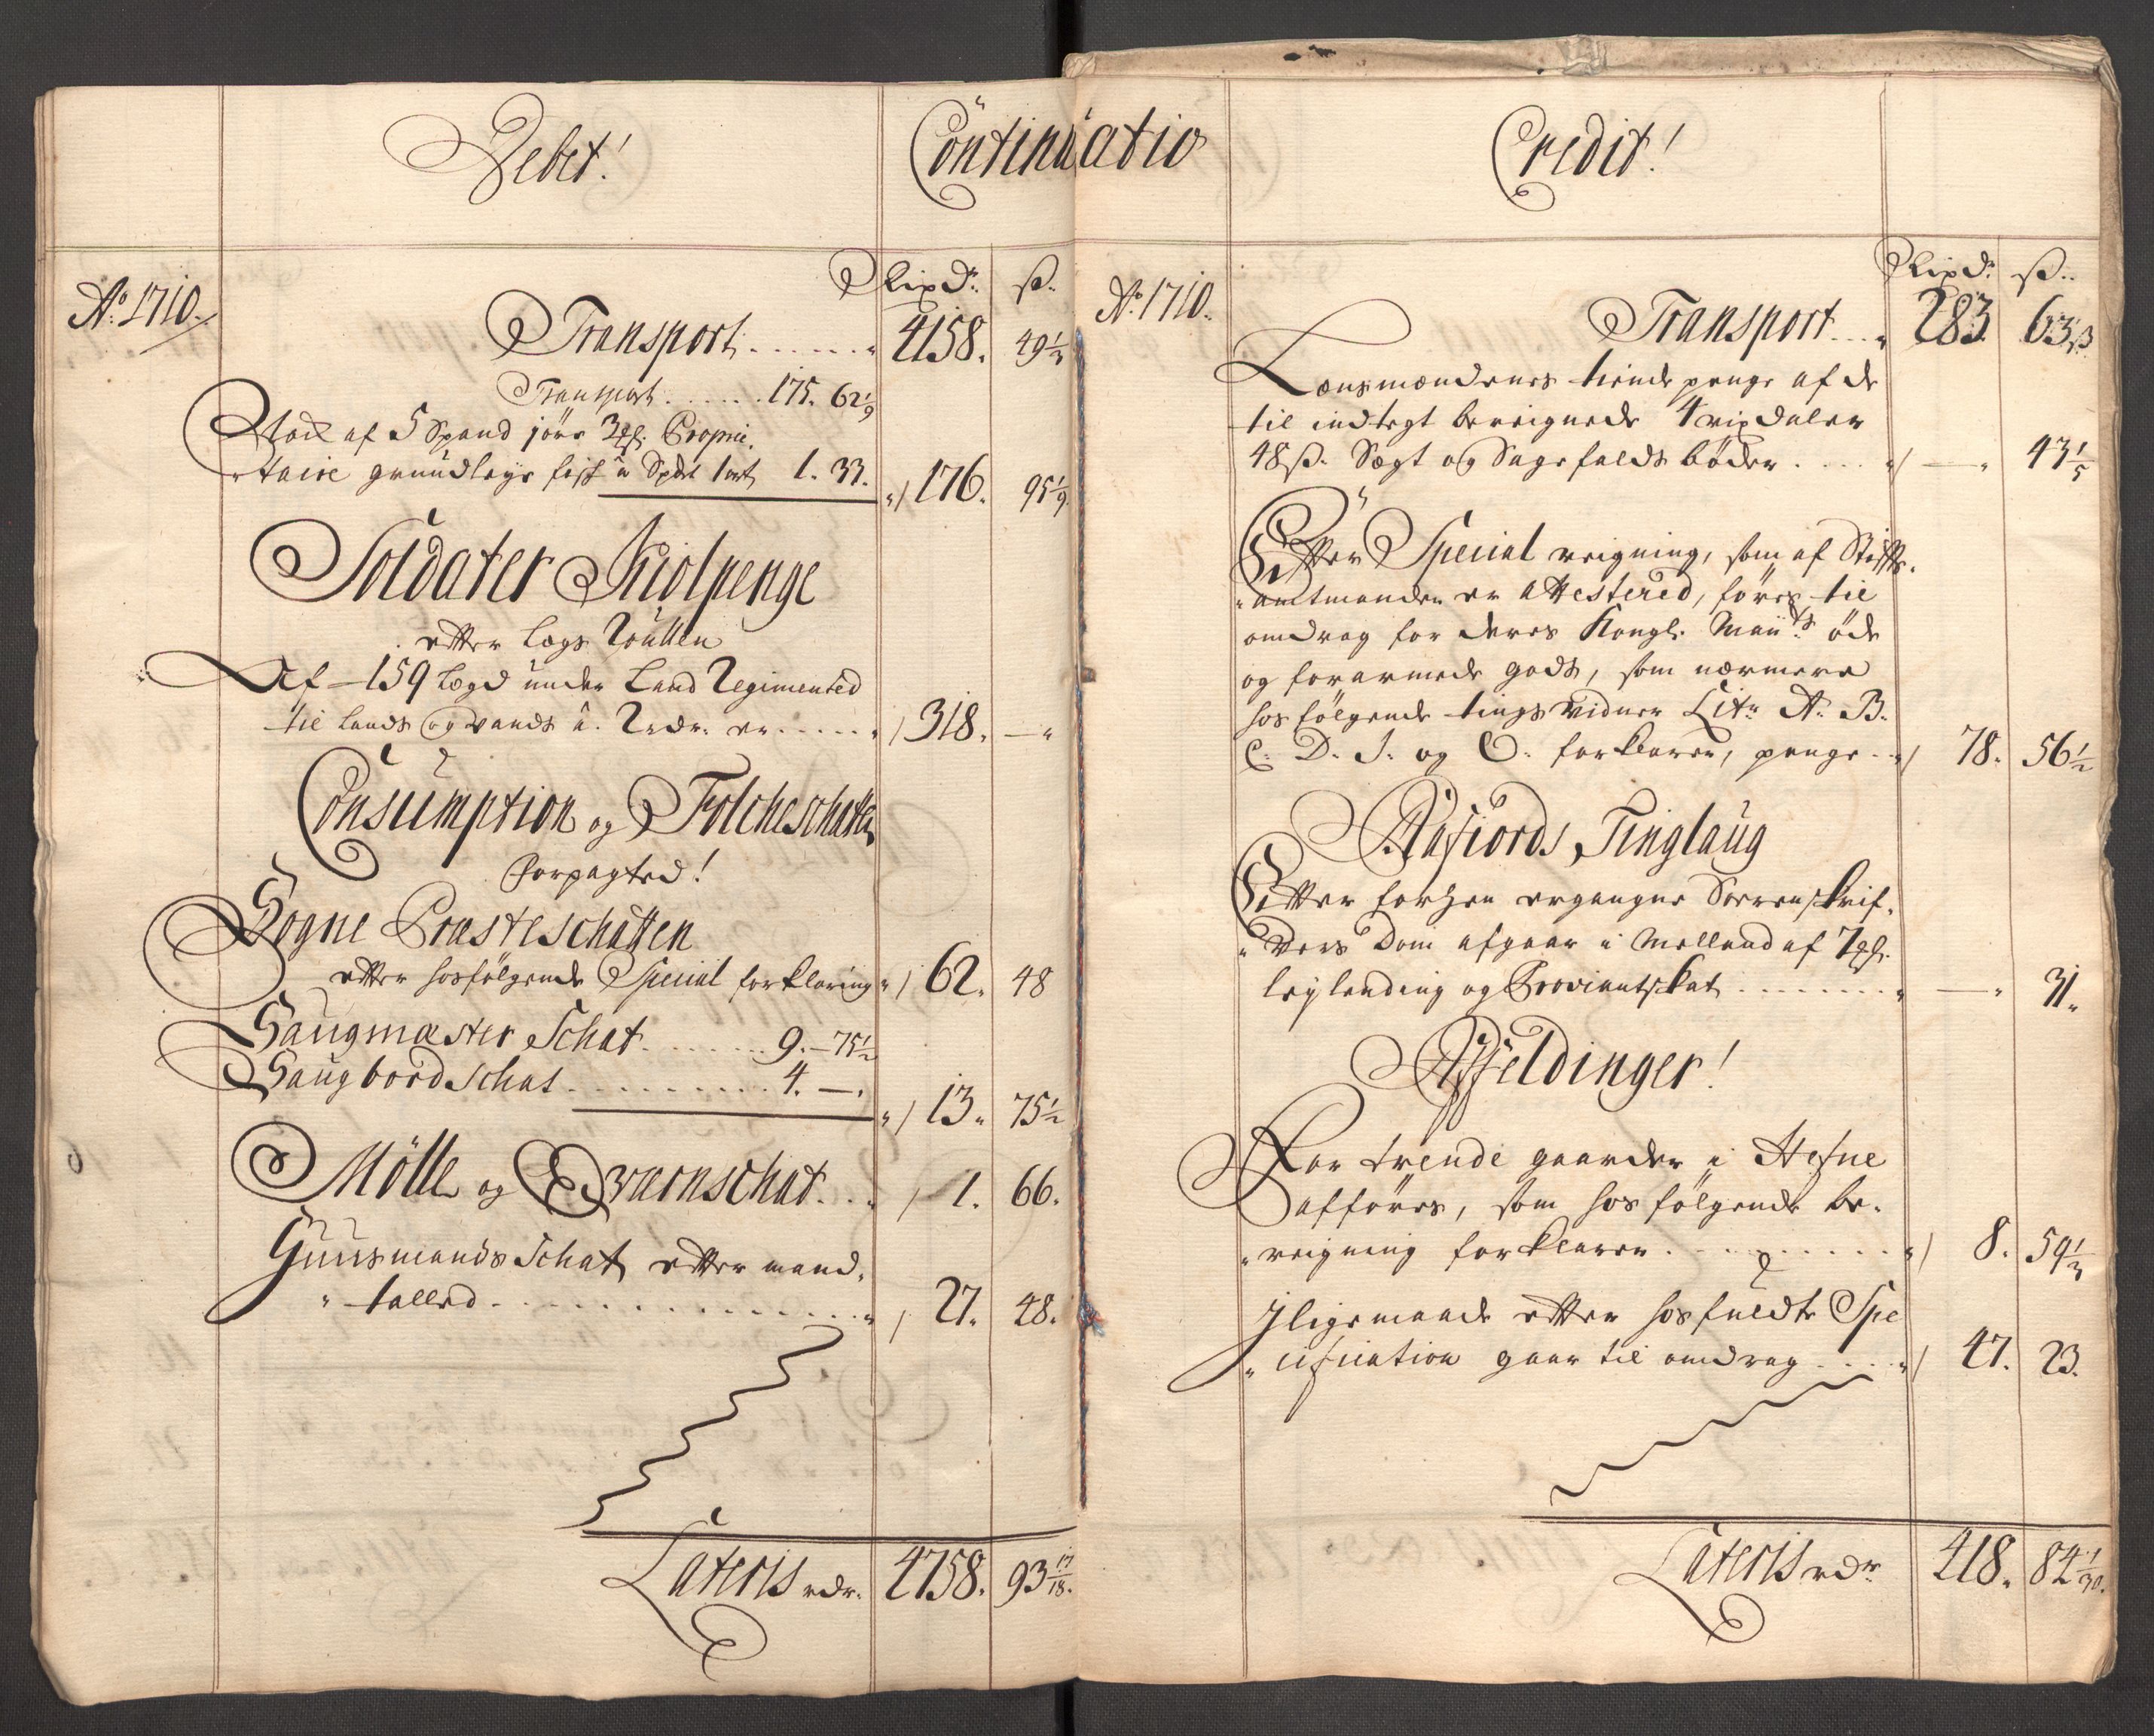 Debet!
Continuatio
Rixdr. ß.
Ao. 1710.
Transport . . . . . . 4158. 49 1/3
Transport . . . . . . 175. 62 1/9
af 5 Spand Proprie,
taire grundleye á 1 ort 1. 33.
176. 95 1/9.
Soldater Kiolpenge
efter Legs Roullen
Af 159 Legd under Land Regimented
til lands og vands á. 2 rdr. er . . . . . 318. —
Consumption og Folcheschatten
Forpagted!
Sogne Præsteschatten
efter hosfølgende Special forklaring 62. 48
Saugmæster Schat . . . . . . . 9. – 75 1/2
Saugbordschat . . . . . . . . . 4. —.
13. 75 1/2
Mölle og Qvarnschat . . . 1. 66.
Huusmands Schat efter mand,
talled . . . . . . . . . . . . . . . 27. 48.
Lateris rdr. 4758. 93 17/18.
Credit!
Rixdr. ß.
Ao. 1710.
Transport . . . 283. 63 ß
Lensmændenes tiende penge af de
til indtegt bereignede 4 rixdaler
48 ß. Sagt og Sagefalds bøder . . . . — 43 1/5
Efter Special reigning, som af Stifts,
amtmanden er attestered, føres til
omdrag for deres Kongl. Maÿts. öde
og forarmede gods, som nærmere
hosfølgende tings vidner Litr. A. B.
C. D. og forklarer, penge . . 78. 56 1/2
Aafiords Tinglaug
Efter forhen ergangne Sorenskrif,
vers Dom afgaar i Melland af
leylending og Proviantskat . . . . . . . . — 31.
Affeldinger!
For trende gaarder i Hefne
afföres, som hosfølgende be,
reigning forklarer . . . . . . . . . 8. 59 1/3
Jligemaade efter hosfuldte Spe
cification gaar til omdrag . . . . 47. 23.
Lateris rdr. 418. 84 1/30.